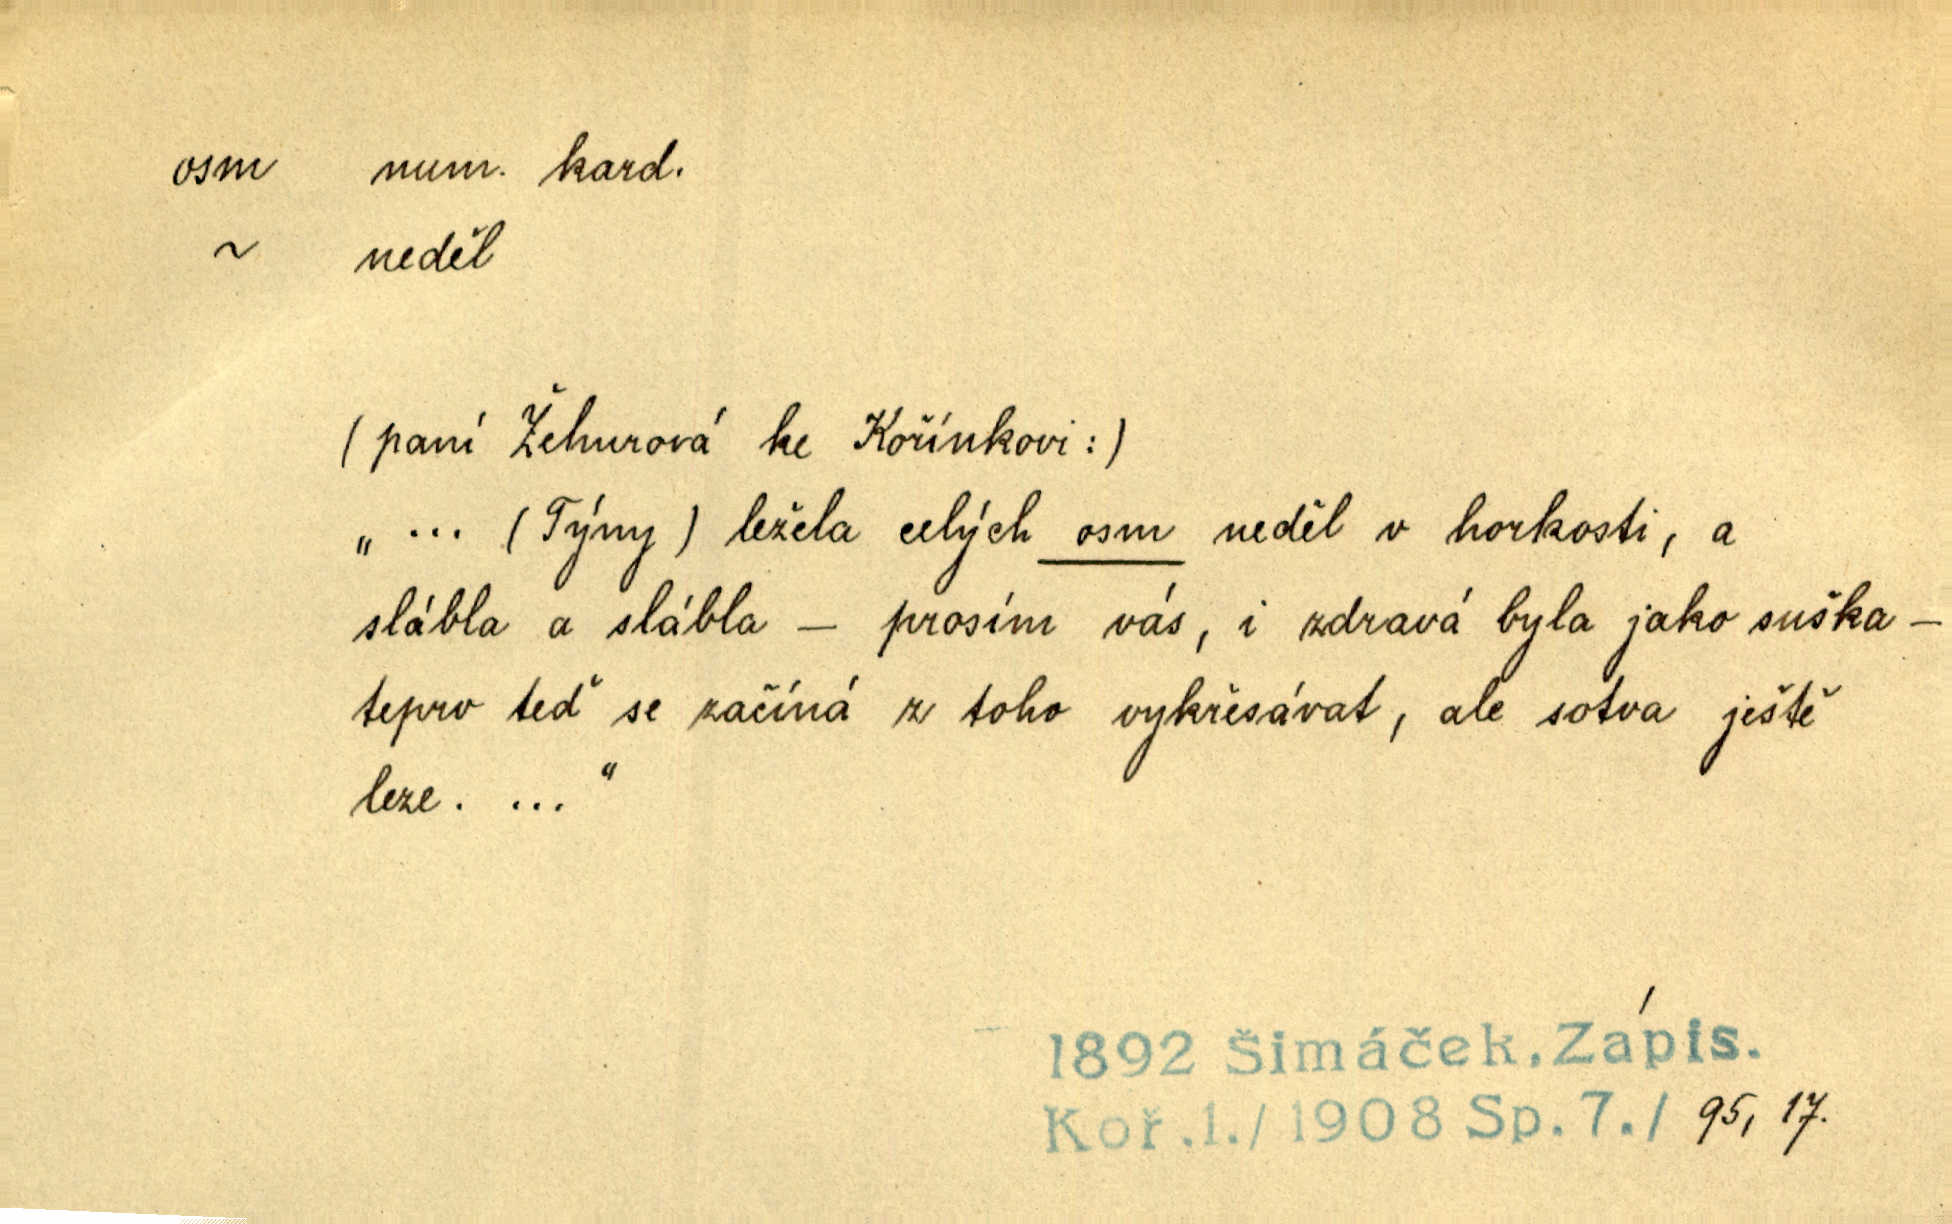 osm num. kard.
~ neděl
(paní Žehurová ke Kořínkovi:)
„ ... (Týny) ležela celých osm neděl v horkosti, a
slábla a slábla – prosím vás, i zdravá byla jako suška –
teprv teď se začíná z toho vykřesávat, ale sotva ještě
leze. ..."
1892 Šimáček, Zápis.
Koř.1./1908 Sp.7./ 95, 17.